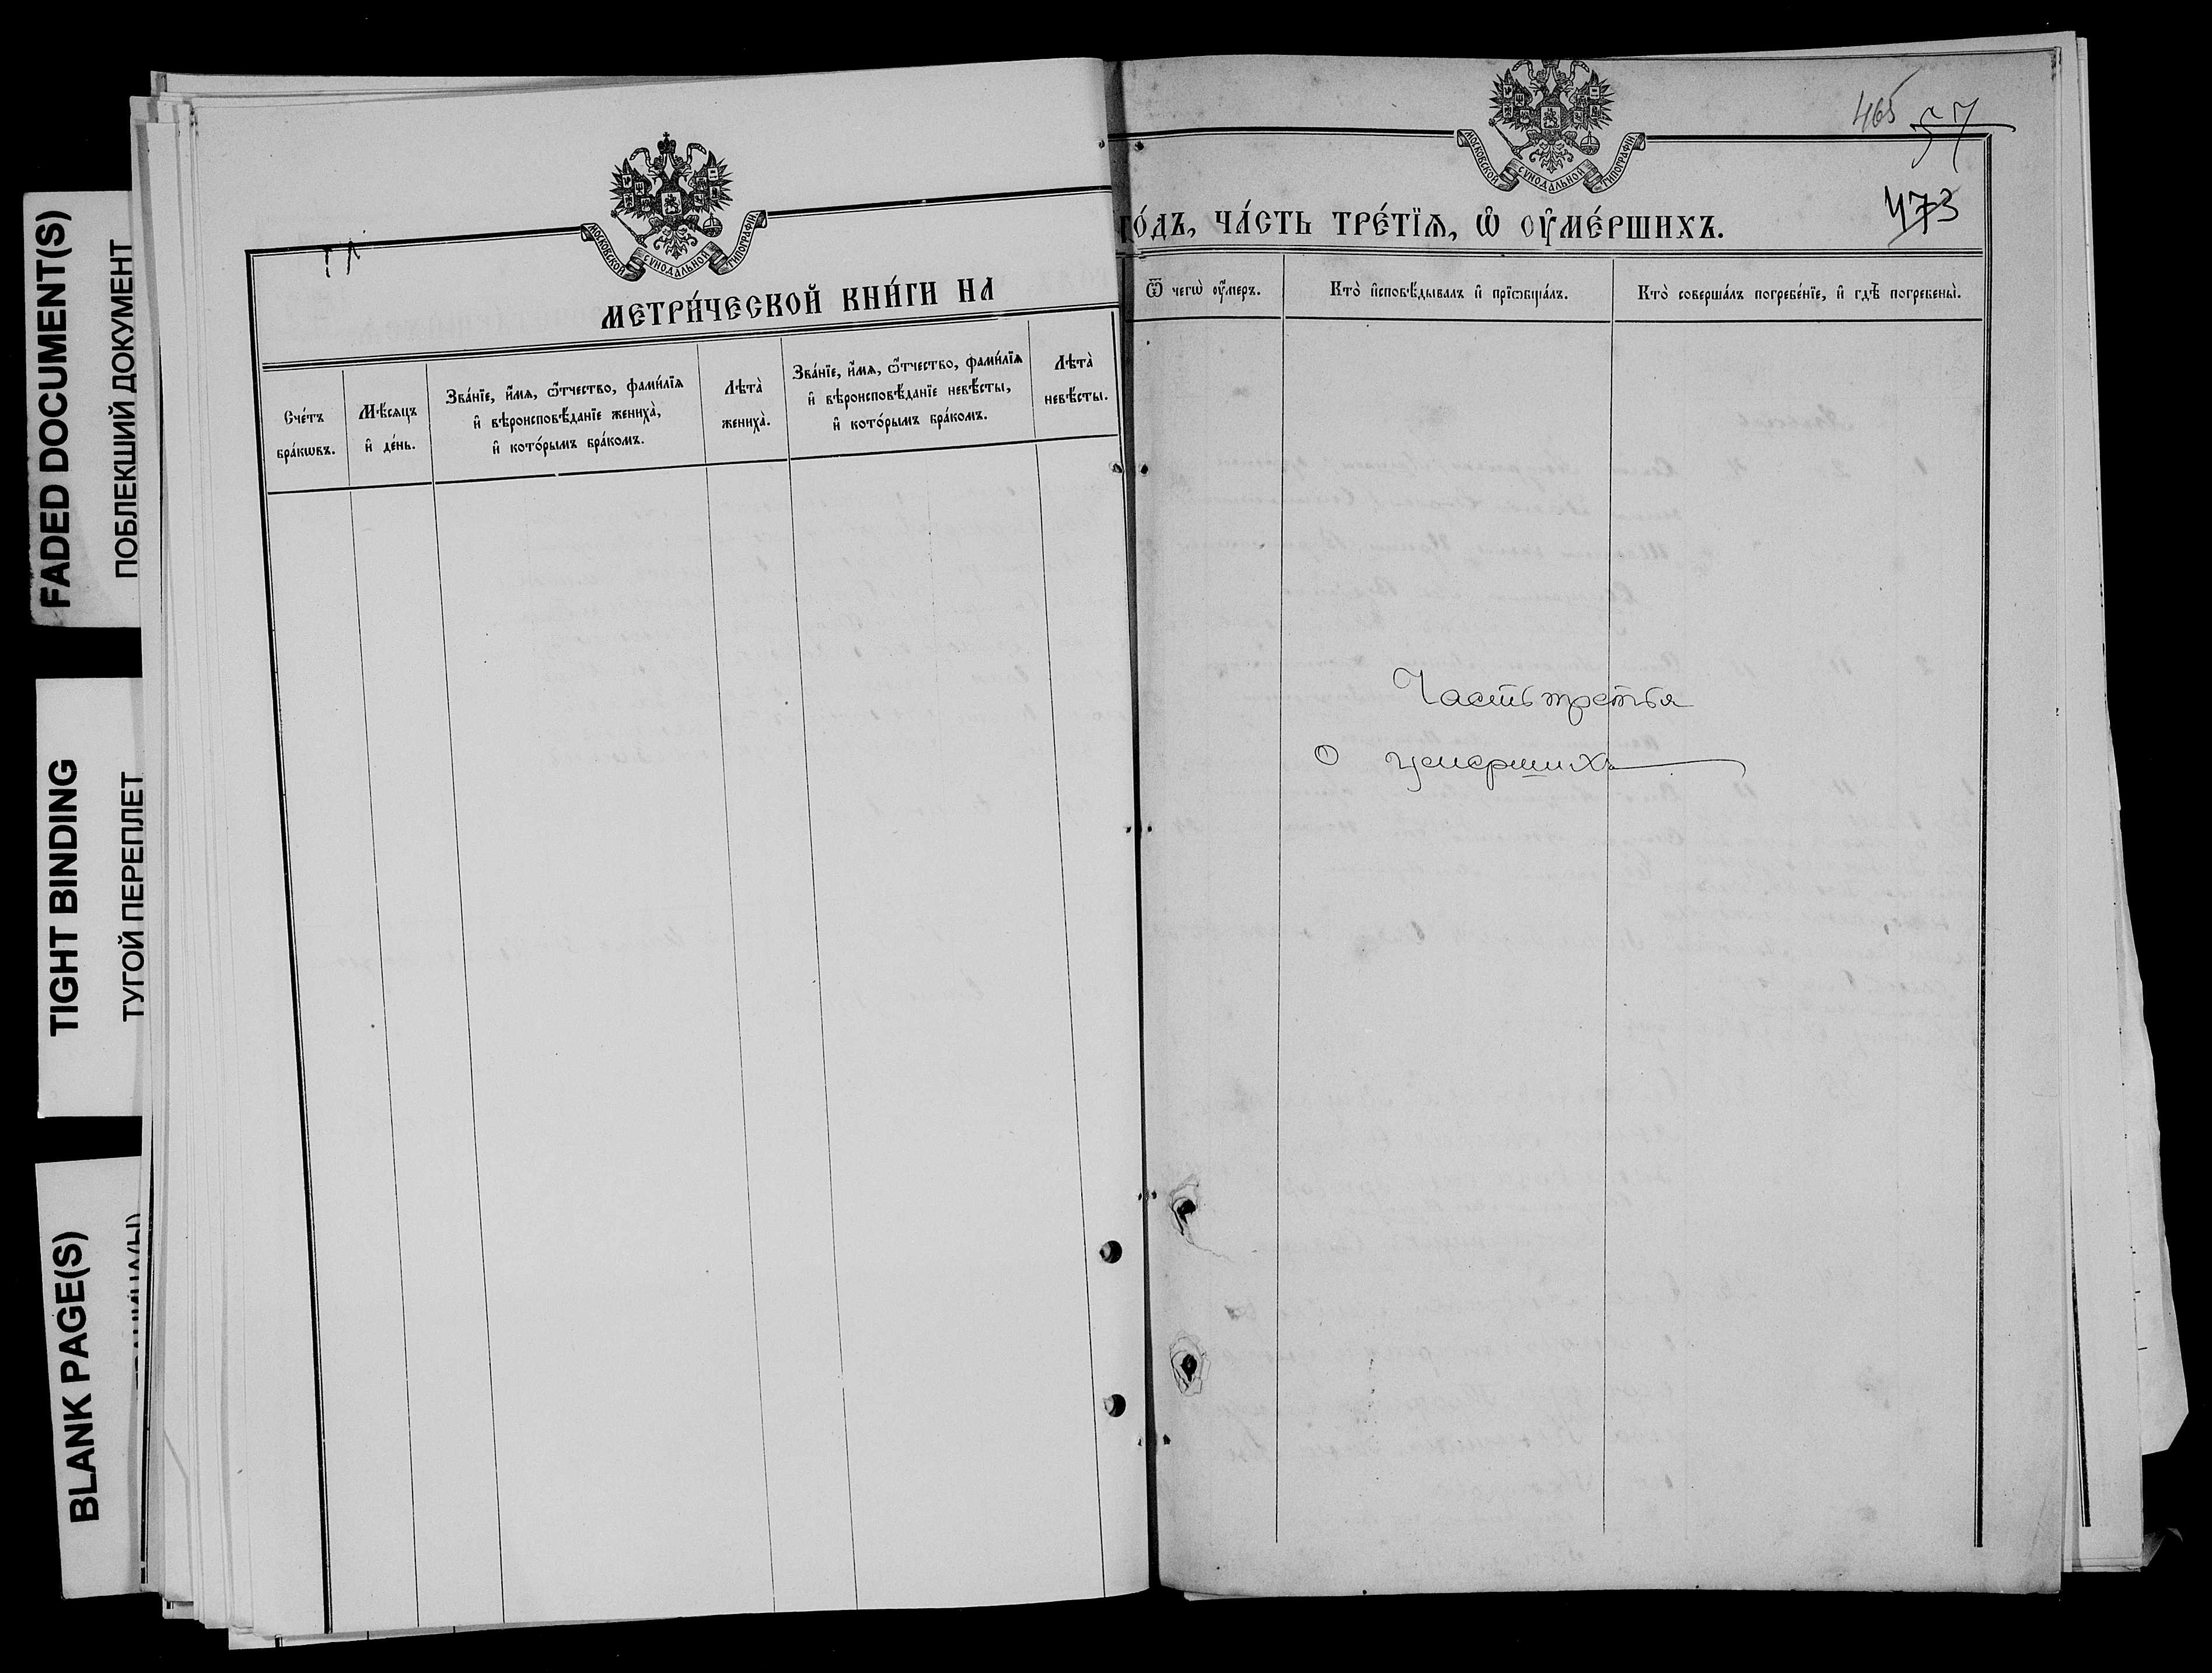 FADED DOCUMENT(S)
ПОБЛЕКШИЙ ДОКУМЕНТ
TIGHT BINDING
ТУГОЙ ПЕРЕПЛЕТ
BLANK PAGE(S)
МОСКОВСКОЙ СѴНОДАЛЬНОЙ ТИПОГРАФІИ
МЕТРИ́ЧЕСКОЙ КНИ́ГИ НА
Сче́тъ бра́кѡвъ.
Мѣ́сяцъ и҆ де́нь.
Зва́нїе, и҆́мѧ, ѻ҆́тчество, фами́лїѧ
и҆ вѣроисповѣ́данїе жениха̀,
и҆ кото́рымъ бра́комъ.
Лѣта̀ жениха̀.
Зва́нїе, и҆́мѧ, ѻ҆́тчество, фами́лїѧ
и҆ вѣроисповѣ́данїе невѣ́сты,
и҆ кото́рымъ бра́комъ.
Лѣта̀ невѣ́сты.
МОСКОВСКОЙ СѴНОДАЛЬНОЙ ТИПОГРАФІИ
465 57
473
ГО́ДЪ, ЧА́СТЬ ТРЕ́ТЇѦ, Ѡ҆ ОУ҆МЕ́РШИХЪ.
Ѿ чегѡ̀ оу҆́меръ.
Кто̀ и҆сповѣ́дывалъ и҆ прїѡбща́лъ.
Кто̀ соверша́лъ погребе́нїе, и҆ гдѣ̀ погребены̀.
Часть третья
о умершихъ